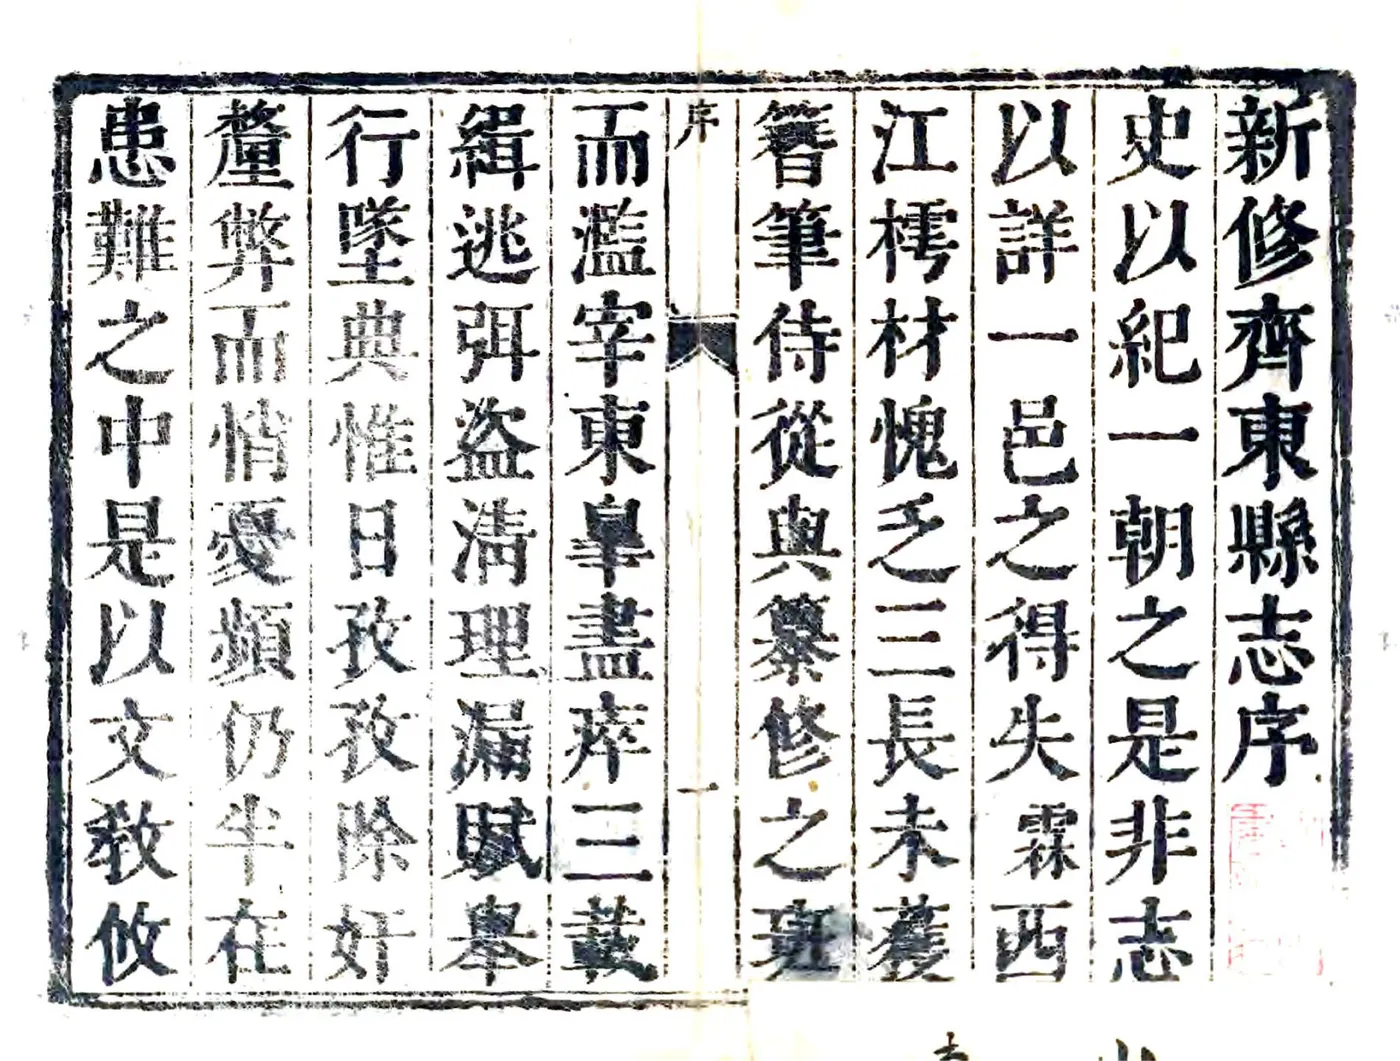 新修齊東縣志序
史以紀一朝之是非志
以詳一邑之得失霖西
江樗材愧乏三長未蒦
簪筆侍從與纂修之班
序
一
而濫宰東皐盡瘁三載
緝逃弭盗淸理漏賦舉
行墜典惟日孜孜除奸
釐弊而悄憂頻仍半在
患難之中是以文敎攸